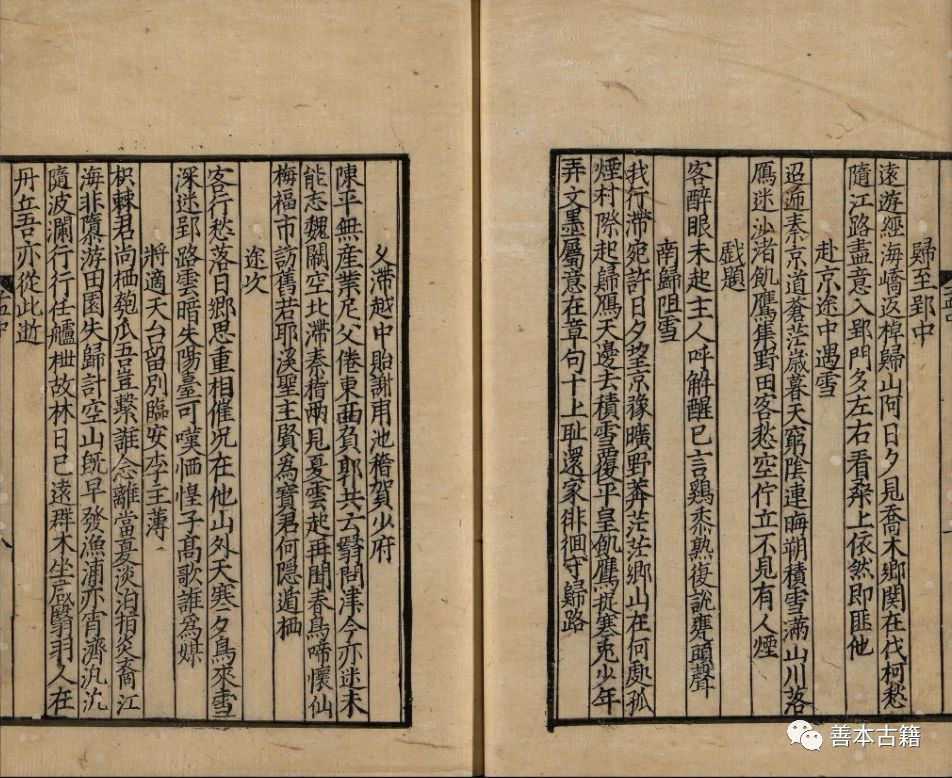 歸至郢中
遠遊經海嶠返棹歸山阿日夕見喬木鄉関在伐柯愁
隨江路盡意入郢門多左右看桑上依然即匪他
赴京途中遇雪
迢逓秦京道蒼茫歲暮天窮陰連晦朔積雪滿山川落
鴈迷沙渚飢鷹集野田客愁空佇立不見有人煙
戲題
客醉眼未起主人呼解醒已言鷄黍熟復說甕頭聲
南歸阻雪
我行滯宛許日夕望京豫曠野莽茫茫鄉山在何處孤
煙村際起歸鴈天邊去積雪覆平皇飢鷹捉寒兎少年
弄文墨屬意在章句十上耻還家徘徊守歸路
久滯越中貽謝甫池稽賀少府
陳平無産業尼父倦東西負郭共云翳問津今亦迷未
能志魏闕空北滯秦稽兩見夏雲起再聞春鳥啼懷仙
梅福市訪舊若耶溪聖主賢爲寶君何隠遁栖
途次
客行愁落日鄉思重相催况在他山外天寒夕鳥來雪
深迷郢路雲暗失陽臺可嘆恓惶子髙歌誰爲媒
將適天台留別臨安李主薄
枳棘君尚栖匏瓜吾豈繫誰念離當夏淡泊指炎裔江
海非隳游田園失歸計空山旣早發漁浦亦宵濟汎汎
隨波瀾行行任艫枻故林日已遠群木坐成翳羽人在
丹丘吾亦從此逝
善本古籍